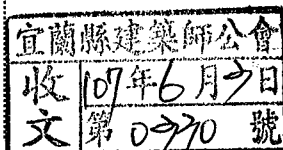 宜蘭縣建築師公會
收文
107年6月27日
第0270號